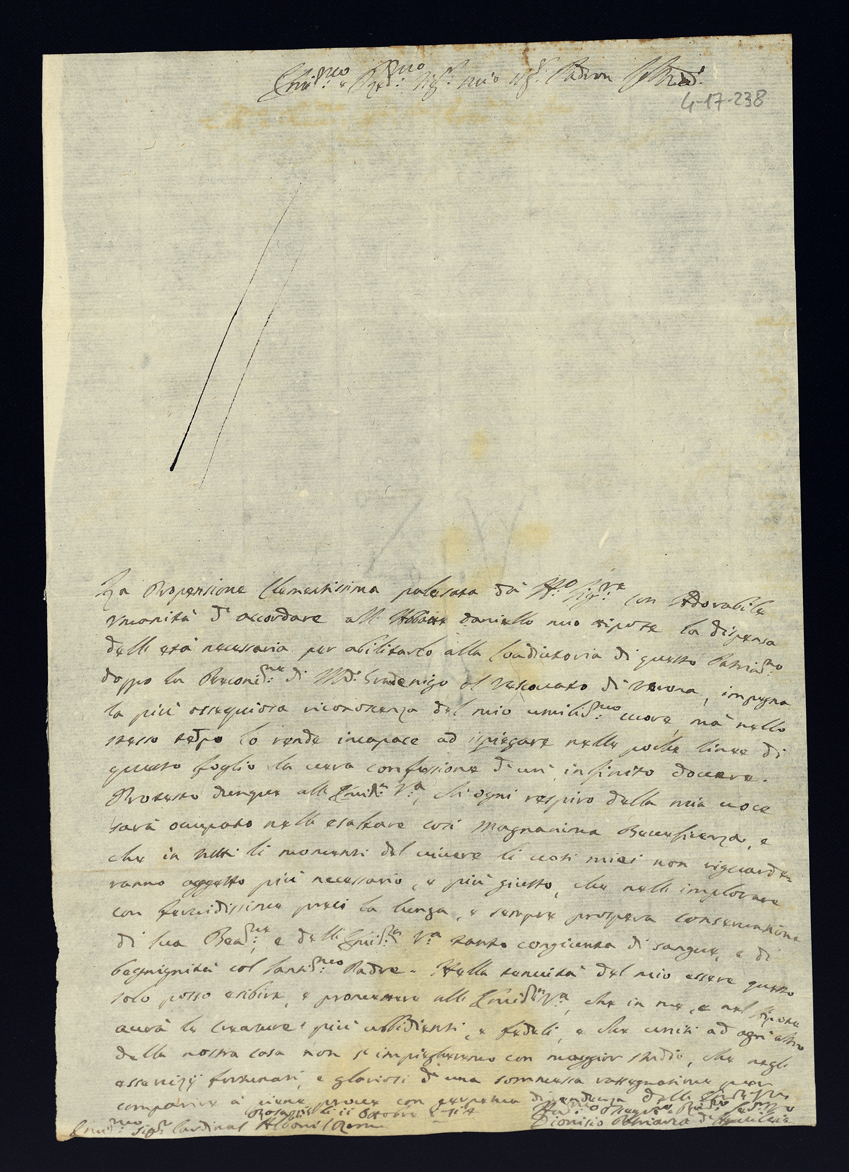 Emin.mo e Rev.mo Sig.r mio Sig.r Padron
4-17-238
La Propensione Clementissima palesata da N.ro Sig.re con Adorabile
Umanità d'accordare all' Abbate Daniello mio nipote la dispensa
dell'età necessaria per abilitarlo alla Coadiutoria di questo Patriar.to
doppo la di M.r Gradenigo al Vescovato di Verona, impegna
la più ossequiosa riconoscenza del mio umiliss.mo cuore mà nello
stesso tempo lo rende incapace ad spiegare nelle poche linee di
questo foglio la vera confessione d'un' infinito dovere.
Protesto dunque all' Emin.a V.a, ch'ogni respiro della mia voce
sarà occupato nell' esaltare così Magnanima Beneficenza, e
che in tutti li momenti del vivere li voti miei non riguarde-
ranno oggetto più necessario, e più giusto, che nell' implorare
con fervidissime preci la lunga, e sempre prospera conservatione
di Sua Bea.ne, e dell' Emin.a V.a tanto congiunta di sangue, e di
begnignità col Santiss.mo Padre. Nella tenuità del mio essere questo
solo posso esibire, e promettere all' Emin.a V.a, che in me, e nel Nipote
averà le creature più ubbidienti, e fedeli, e che uniti ad ogn'altro
della nostra casa non s'impiegheremo con maggior studio, che negli
essercizij fortunati, e gloriosi d'una sommessa rassegnatione
comparire à viene prove con dipendenza dell'
li 11 Ottobre 1714
Emin.mo Sig.r Cardinal Albani Roma
Dionisio Patriarca di Aquileia